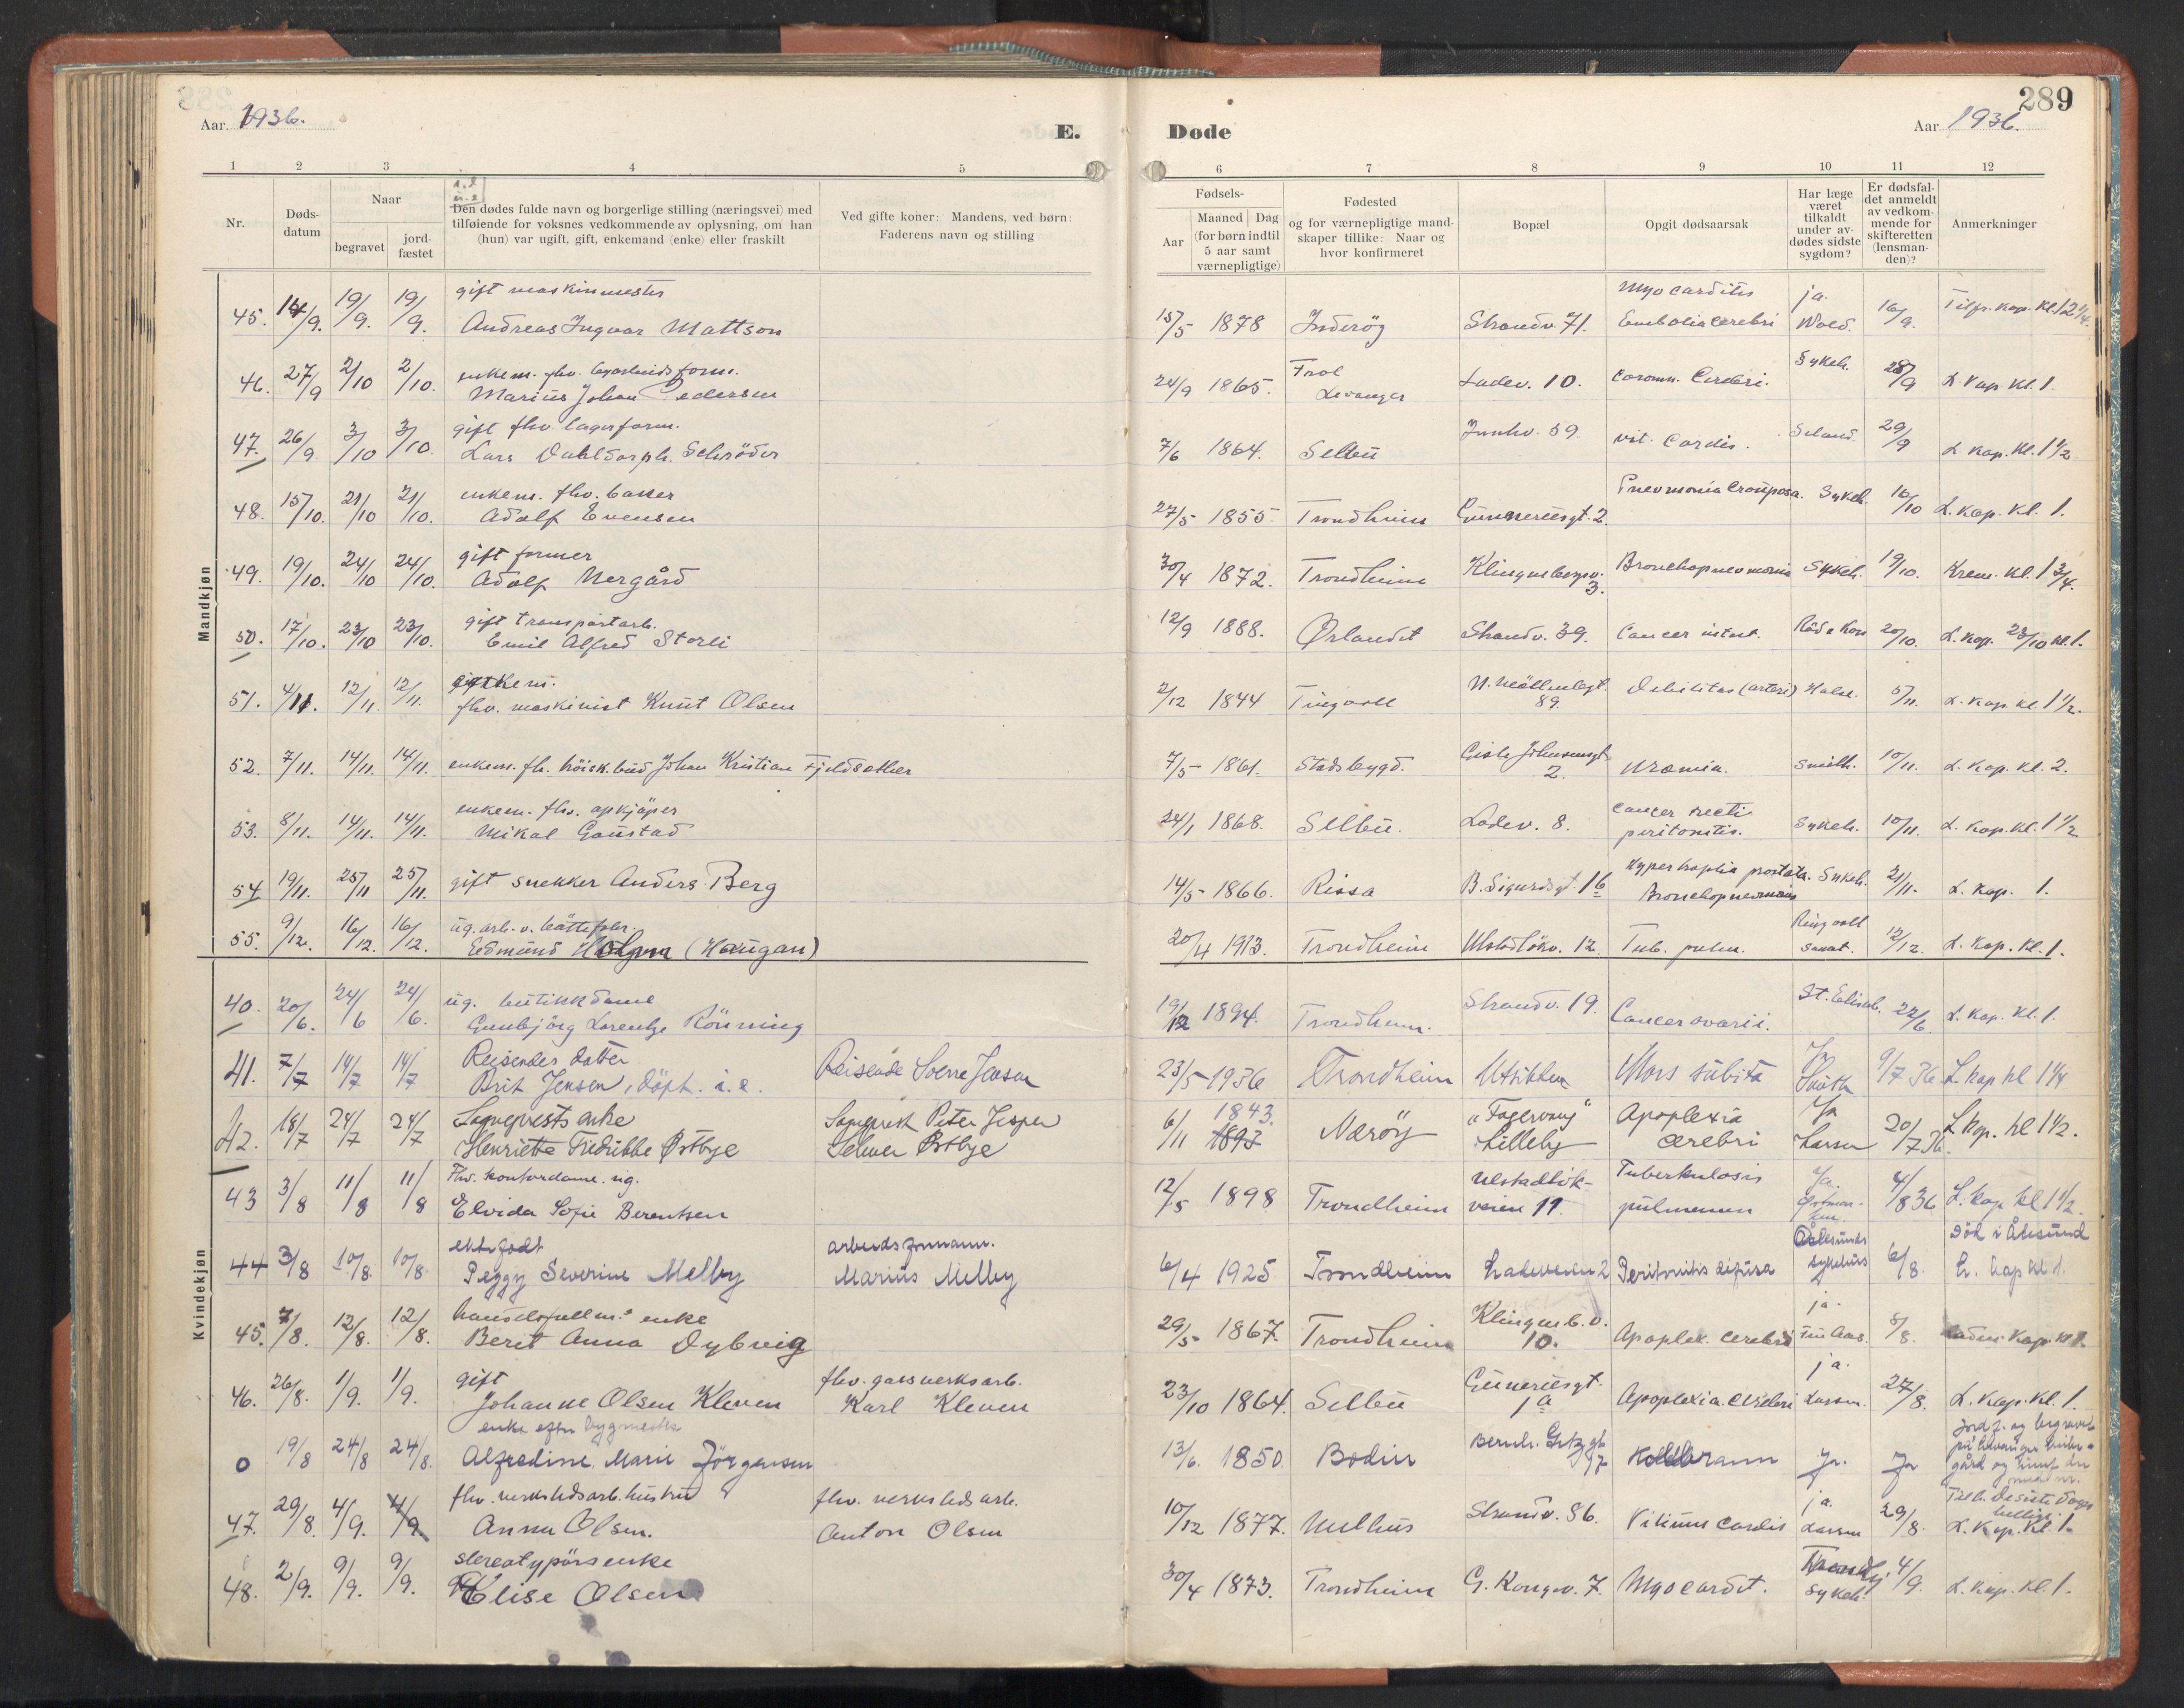 289
Aar 1936.
E. Døde
Aar 1936.
1 2 3 4 5 6 7 8 9 10 11 12
Nr.
Døds-
datum
Naar
begravet
jord-
fæstet
Den dødes fulde navn og borgerlige stilling (næringsvei) med
tilføiende for voksnes vedkommende av oplysning, om han
(hun) var ugift, gift, enkemand (enke) eller fraskilt
Ved gifte koner: Mandens, ved børn:
Faderens navn og stilling
Fødsels-
Aar
Maaned Dag
(for børn indtil
5 aar samt
værnepligtige)
Fødested
og for værnepligtige mand-
skaper tillike: Naar og
hvor konfirmeret
Bopæl
Opgit dødsaarsak
Har læge
været
tilkaldt
under av-
dødes sidste
sygdom?
Er dødsfal-
det anmeldt
av vedkom-
mende for
skifteretten
(lensman-
den)?
Anmerkninger
Mandkjøn
gift maskinmester Myocarditis ja.
45. 14/9. 19/9. 19/9. Andreas Ingvar Mattson 15/5 1878 Inderöy Strandv. 71. Embolia cerebri Wold. 16/9. Tilfr. kap. kl. 12 1/4.
enkem. fhv. Frol Sykeh.
46. 27/9 2/10 2/10. Marius Johan Pedersen 24/9 1865. Levanger Ladev. 10. Cerebri. 28/9 L. kap kl 1.
gift fhv lagerform.
47. 26/9 3/10 3/10. Lars Schröder 7/6 1864. Selbu 59. vit. Cordis. 29/9 L kap. kl. 1 1/2
enkem. fhv. baker Pneumonia Crouposa. Sykeh.
48. 15/10. 21/10 21/10. Adolf Evensen 27/5 1855. Trondheim Gunnerusgt. 2. 16/10 L. kap. kl. 1.
gift former
49. 19/10. 24/10 24/10. Adolf Nergård 30/4 1872. Trondheim Klingenbergv. 3. Bronchopneumonia Sykeh. 19/10. Krem. kl. 1 3/4.
gift transportarb.
50. 17/10. 23/10 23/10. Emil Alfred Storli 12/9 1888. Ørlandet Strandv. 39. Cancer intest. Röde Kors 20/10. L. kap. 23/10 kl. 1.
enkem.
51. 4/11. 12/11. 12/11. fhv. maskinist Knut Olsen 2/12 1844 Tingvoll N. Möllenbgt. 89. Debilitas (arteri) 5/11. L. kap kl 1 1/2.
52. 7/11. 14/11. 14/11. enkem. fh. höisk. bud Johan Kristian Fjeldsæther 7/5 1861. Stadsbygd. Cicil. Johnsensgt. 2. Uræmia. Smith. 10/11. L. kap. kl. 2.
enkem. fhv. opkjöper Cancer recti
53. 8/11. 14/11. 14/11. Mikal Gaustad 24/1 1868. Selbu. Ladev. 8. peritonitis. Sykeh. 10/11. L. kap. kl. 1 1/2
54 19/11. 25/11 25/11. gift snekker Anders Berg 14/5 1866. Rissa B. Sigurdsgt. 16 prostata. Bronchopneumoni Sykeh. 21/11. L. kap. 1.
ug. arb. v. Ringvoll
55. 9/12. 16/12. 16/12. Edmund (Haugan) 20/4 1913. Trondheim Ulstadlökv. 12. Tub. pulm. sanat. 12/12. L. kap. kl. 1.
Kvindekjøn
ug. butikkdame St. Elisab.
40. 20/6. 24/6 24/6. Gunbjörg Lorentze Rönning 19/12 1894. Trondheim. Strandv. 19. Cancer ovarii. 22/6. L. kap. kl. 1.
Reisendes datter Ja
41. 7/7 14/7 14/7 Brit Jensen, döpt. i. e. Reisende Sverre Jensen 23/5 1936 Trondheim Utsikten Mors subita Smith 9/7 36 L kap kl 1 1/4
enke Peter Jesper 1843. "Fagervang" Apoplexia Ja
42. 18/7 24/7 24/7 Henriette Fredrikke Østbye Østbye 6/11 1893 Nærøy Lilleby cerebri Larsen 20/7 36. L. kap. kl 1 1/2.
Fhv. kontordame. ug. Ulstadlök- Tuberkulosis Ja.
43 3/8 11/8 11/8 Elvida Sofie Berentsen 12/5 1898 Trondheim veien 11. pulmonum 4/8 36 L. kap kl 1 1/2.
ektefödt arbeidsformann. Ålesunds Död i Ålesund
44 3/8 10/8. 10/8. Peggy Severine Melby Marius Melby 6/4 1925 Trondheim Ladeveien 2 Peritonitis difusa sykehus 6/8. L. kap kl 1.
enke Klingenb. v. ja.
45. 7/8. 12/8. 12/8. Berit Anna Dybvig 29/5 1867. Trondheim 10. Apoplex. cerebri Aas. 8/8. Lades kap. kl 1.
gift fhv. gassverksarb. Gunerusgt. ja.
46. 26/8. 1/9. 1/9. Johanne Olsen Kleven Karl Kleven 23/10 1864. Selbu 1a Apoplexia cerebri Larsen. 27/8. L. kap. kl. 1.
enke efter bygmester Jordf. og begravet
0 19/8 24/8 24/8. Alfredine Marie Jörgensen 13/6. 1850 Bodin Bernh. Getz gt 17 Koldbrann Ja. Ja på Levanger kirke-
gård og
fhv. verkstedsarb. hustru fhv. verkstedsarb. ja. Siste Dages hellige
47. 29/8. 4/9. 4/9. Anna Olsen. Anton Olsen 10/12 1877. Melhus Strandv. 86. Vitium Cordis Larsen 29/8. L. kap. kl 1.
stereotypörs enke
48. 2/9. 9/9. 9/9. Elise Olsen 30/4 1873. Trondheim G. Kongev. 7. Myocardit. sykeh. 4/9. L. kap. kl. 1.